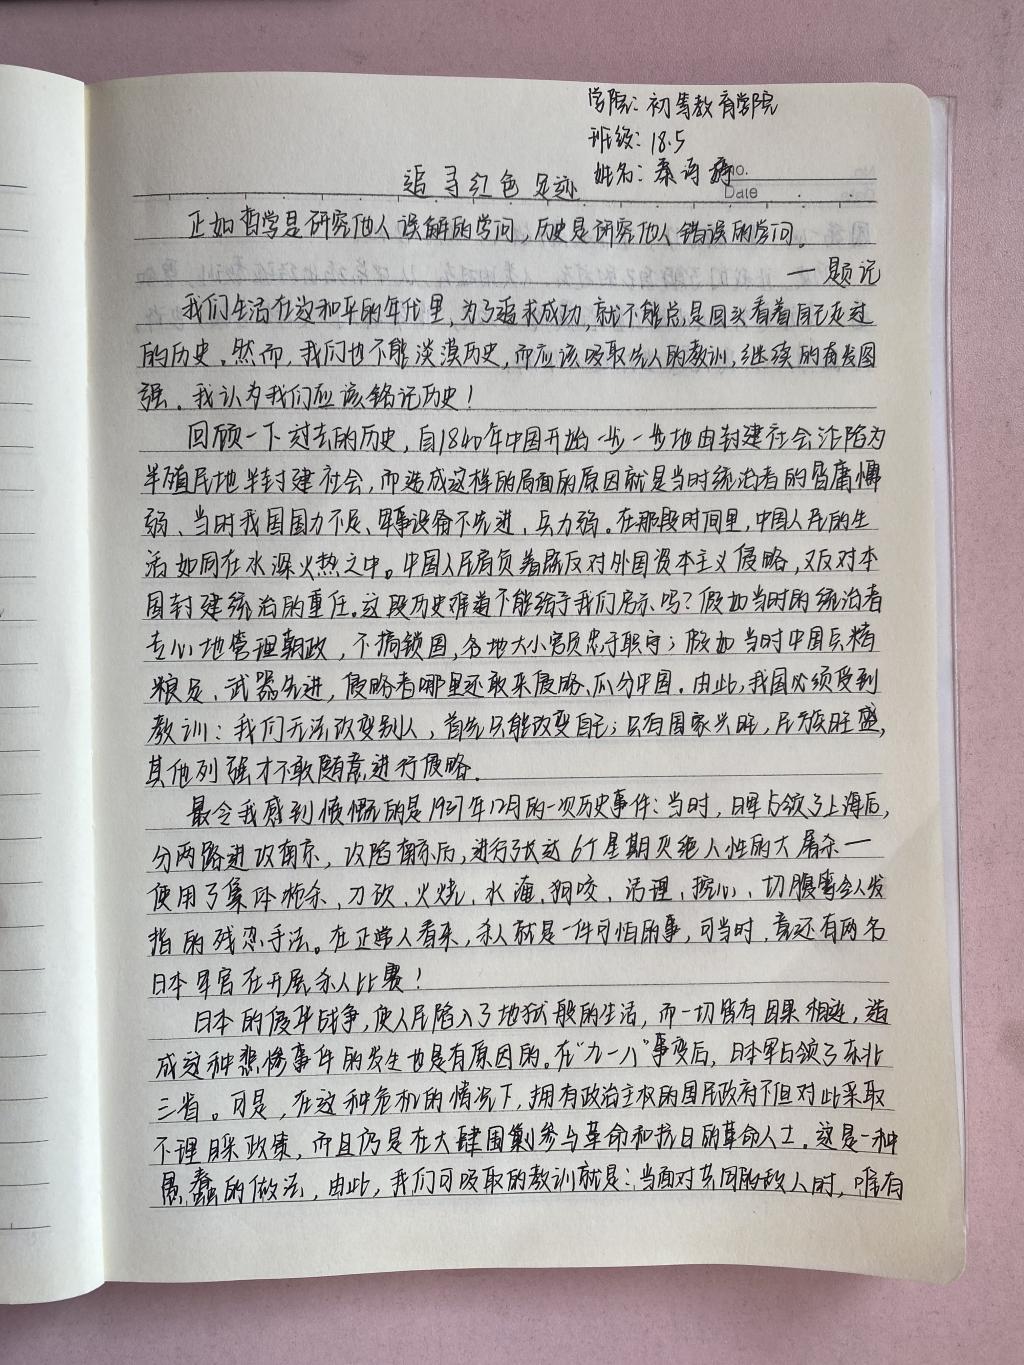 学院：初等教育学院
班级：18.5
姓名：秦诗婷
No.
追寻红色足迹
Date
正如哲学是研究他人误解的学问，历史是研究他人错误的学问。
— 题记
我们生活在这和平的年代里，为了追求成功，就不能总是回头看着自己走过
的历史。然而，我们也不能淡漠历史，而应该吸取先人的教训，继续的奋发图
强。我认为我们应该铭记历史！
回顾一下过去的历史，自1840年中国开始一步一步地由封建社会沦陷为
半殖民地半封建社会，而造成这样的局面的原因就是当时统治者的昏庸懦
弱、当时我国国力不足、军事设备不先进、兵力弱。在那段时间里，中国人民的生
活如同在水深火热之中。中国人民肩负着既反对外国资本主义侵略，又反对本
国封建统治的重任。这段历史难道不能给予我们启示吗？假如当时的统治者
专心地管理朝政，不搞锁国，各地大小官员忠于职守；假如当时中国兵精
粮足、武器先进，侵略者哪里还敢来侵略、瓜分中国。由此，我国必须受到
教训：我们无法改变别人，首先只能改变自己；只有国家兴旺，民族旺盛，
其他列强才不敢随意进行侵略。
最令我感到愤慨的是1937年12月的一次历史事件：当时，日军占领了上海后，
分两路进攻南京，攻陷南京后，进行了长达6个星期灭绝人性的大屠杀—
使用了集体枪杀、刀砍、火烧、水淹、狗咬、活埋、挖心、切腹等令人发
指的残忍手法。在正常人看来，杀人就是一件可怕的事，可当时，竟还有两名
日本军官在开展杀人比赛！
日本的侵华战争，使人民陷入了地狱般的生活，而一切皆有因果相连，造
成这种悲惨事件的发生也是有原因的。在“九一八”事变后，日本军占领了东北
三省。可是，在这种危机的情况下，拥有政治主权的国民政府不但对此采取
不理睬政策，而且仍是在大肆围剿参与革命和抗日的革命人士。这是一种
愚蠢的做法，由此，我们可吸取的教训就是：当面对共同的敌人时，唯有